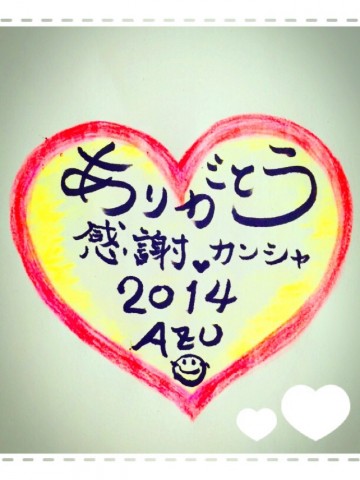 ありがとう
感謝♥カンシャ
2014
AZU